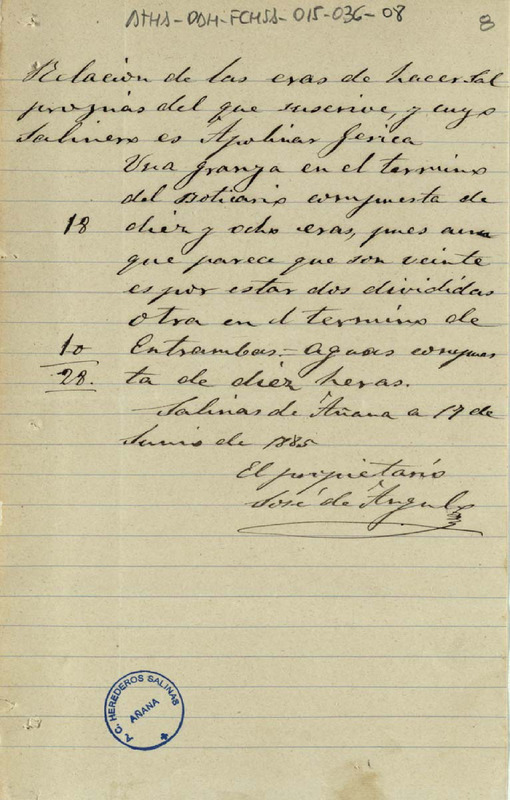 ATHA-DAH-FCHSA-015-036-08
8
Relacion de las eras de hacer sal
propias del que suscrive, y cuyo
Salinero es Apolinar Gerica
Una granza en el termino
del Boticario compuesta de
18 diez y ocho eras, pues aun
que parece que son veinte
es por estar dos divididas
otra en el termino de
10 Entrambas-aguas compues
28. ta de diez heras.
Salinas de Añana a 17 de
Junio de 1885
El propietario
José de Angulo
A. C. HEREDEROS SALINAS
AÑANA